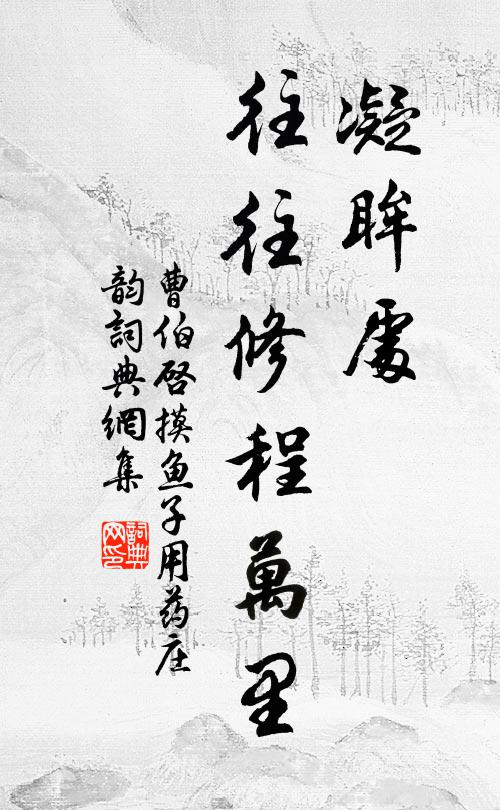 凝眸處
往往修程萬里
曹伯啓摸鱼子用药庄
韵詞典網集
詞典网印